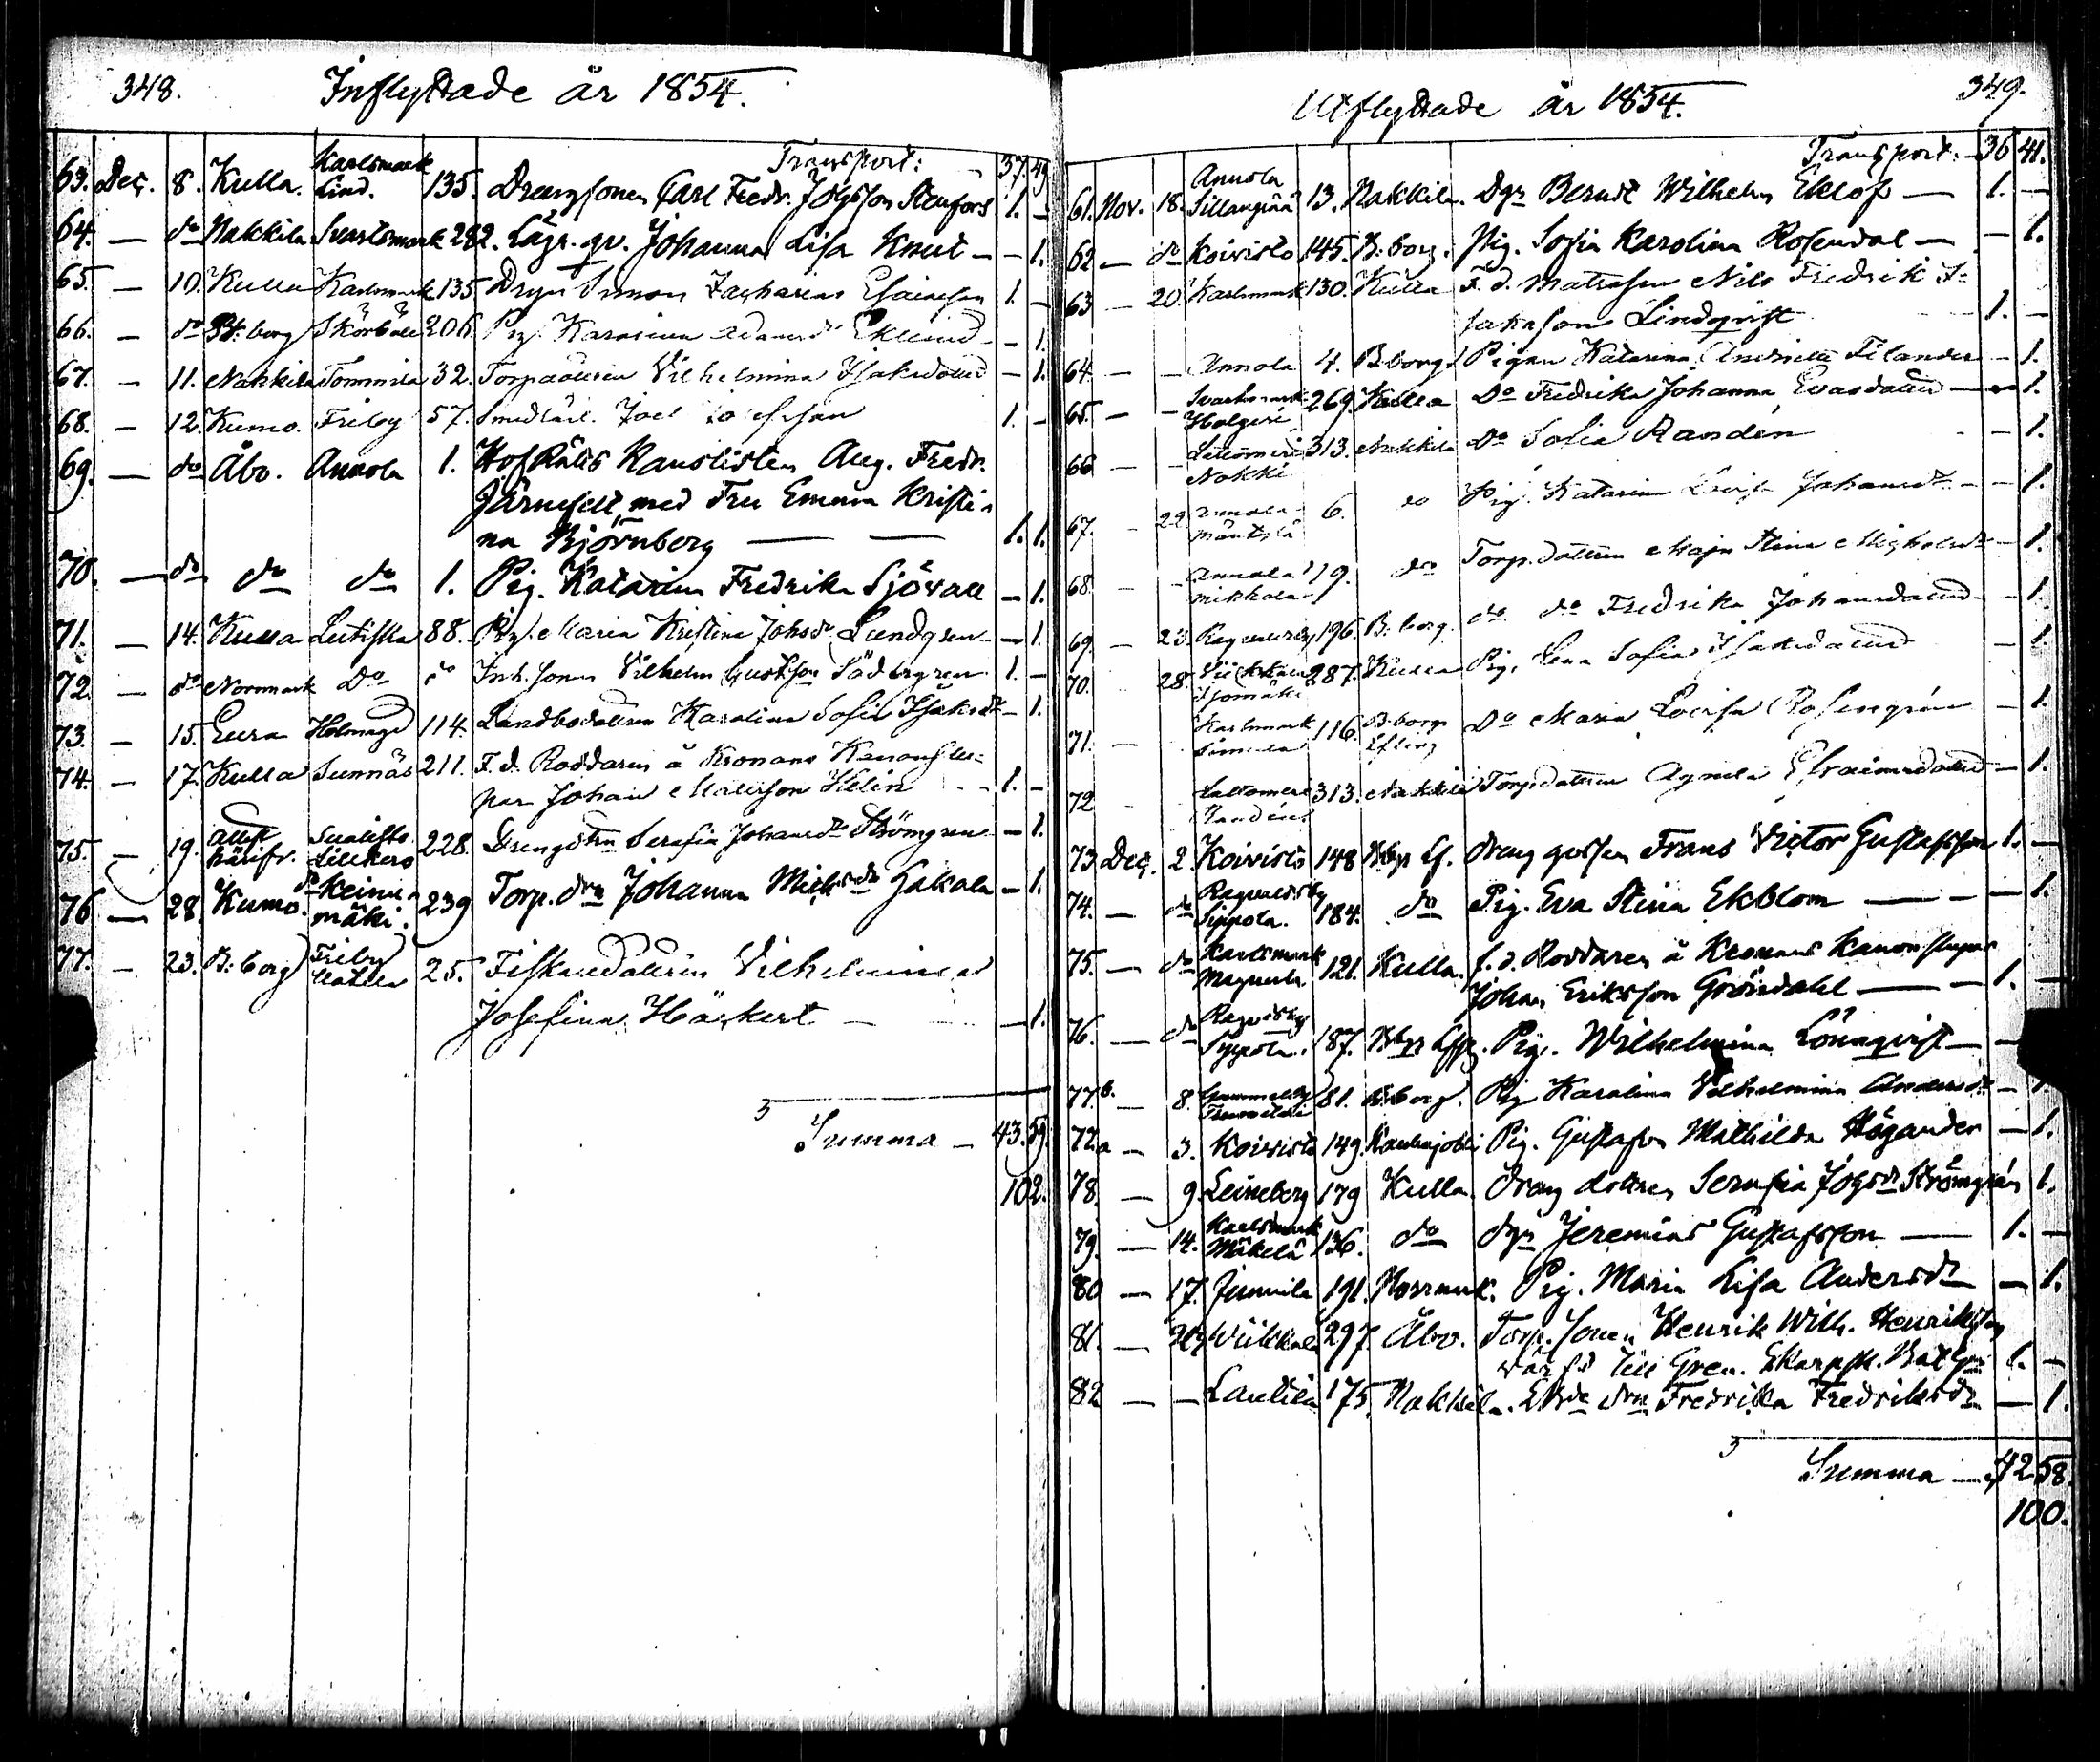 348. Inflyttade år 1854.
Transport: 37. 49
63. Dec. 8. Kulla. Karlsmark Lind. 135. Drengsonen Carl Fredr. Johsson Stenfors 1. –
64. — do Nakkila Svartsmark 282. Lägr. qv. Johanna Lisa Knut – – 1.
65. — 10. Kulla Karlsmark 135 Drgn Simon Zacharias Esaiasson 1. –
66. – do B:borg Skörböle 206. Pig. Karolina Adamsdr Eklund – 1.
67. – 11. Nakkila Tommila 32. Torpdottren Vilhelmina Isaksdotter – 1.
68. – 12. Kumo. Friby 57. Smedlärl. Joel Josefsson 1. –
69. — do Åbo. Annola 1. HofRätts Kanslisten Aug. Fredr.
Järnefelt med Fru Emma Kristi-
na Björnberg — — 1. 1.
70. — do do do 1. Pig. Katarina Fredrika Sjövall – 1.
71. – 14. Kulla Lutiska 88. Pig. Maria Kristina Johsdr Lundgren – 1.
72. – do Norrmark Do do Inh. sonen Vilhelm Gustfson Södergren 1. –
73. – 15. Eura Holmagd 114. Landbodottren Karolina Sofia Isaksdr – 1.
74. – 17. Kulla Sunnäs 211. F. d. Roddaren å Kronans Kanonslu-
par Johan Mattsson Helin – – 1. –
75. – 19. 228. Drengdtrn Serafia Johansdr Strömgren – 1.
76 — 28. Kumo. do Keinu-mäki. 239 Torp. drn Johanna Michsdr Hakala – 1.
77. – 23. B:borg Friby 25. Fiskaredottren Vilhelmina
Josefina Härkert – – 1.
Summa – 43. 59.
102.
Utflyttade år 1854. 349.
Transport: – 36 41.
61. Nov. 18. Annola Sillanpää 13. Nakkila. Dgn Berndt Wilhelm Eklöf — 1. –
62 — do Koivisto 145. B:borg. Pig. Sofia Karolina Rosendal — – 1.
63 – 20. Karlsmark 130. Kulla F. d. Matrosen Nils Fredrik I-
saksson Lindqvist 1. –
64. – – Annola 4. B:borg Pigan Katarina Andrietta Filander – 1.
65. – – Svartsmark Holgeri 269. Kulla Do Fredrika Johanna Evasdotter — 1.
66 – – Lattomeri Nokki 313. Nakkila Do Sofia Randén – 1.
67. – 22 Annola Mäntylä 6. do Pig. Katarina Lovisa Johansdr – – 1.
68. – – Annola Mikkola 19. do Torp.dottren Maja Stina Michelsdr – 1.
69 – 23. Ragvaldsby 196. B:borg. do do Fredrika Johansdotter – 1.
70. 28. 287. Kulla Pig. Lena Sofia Isaksdotter – 1.
71. – Karlsmark Simula 116. B:borg Do Maria Lovisa Rosengrén – 1.
72 – Lattomeri Randén 313. Nakkila Torp.dottren Agneta Efraimsdotter – 1.
73. Dec. 2. Koivisto 148 Drang gossen Frans Victor Gustafsson 1. –
74. — do Ragvaldsby Sippola. 184. do Pig. Eva Stina Ekblom — – 1.
75. — do Karlsmark Magnula 121. Kulla. f. d. Roddaren å Kronans Kanonslupar
Johan Eriksson Gröndahl — – 1. –
76. — do Ragvldsby Sippola. 187. Pig. Wilhelmina Lönnqvist — –
77.b. – 8. Gammelby 81. B:borg. Pig Karolina Vilhelmina Andersdr – 1.
77.a – 3. Koivisto 149. Pig. Gustafva Mathilda Högander – 1.
78. — 9. Leineberg 179 Kulla. Drang dottren Serafia Johsdr Strömgrén 1.
79. — 14. Karlsmark Mäkelä 136. do dgn Jeremias Gustafsson — 1. –
80 — 17. Junnila 191. Norrmark. Pig. Maria Lisa Andersdr — – 1.
81. — Wiikkala 297. Åbo. Torp. sonen Henrik Wilh. Henriksson
till Gren. Skarpsk. Batljn 1. –
82 — – Lautila 175. Nakkila. drn Fredrika Fredriksdr — 1.
Summa — 42 58.
100.